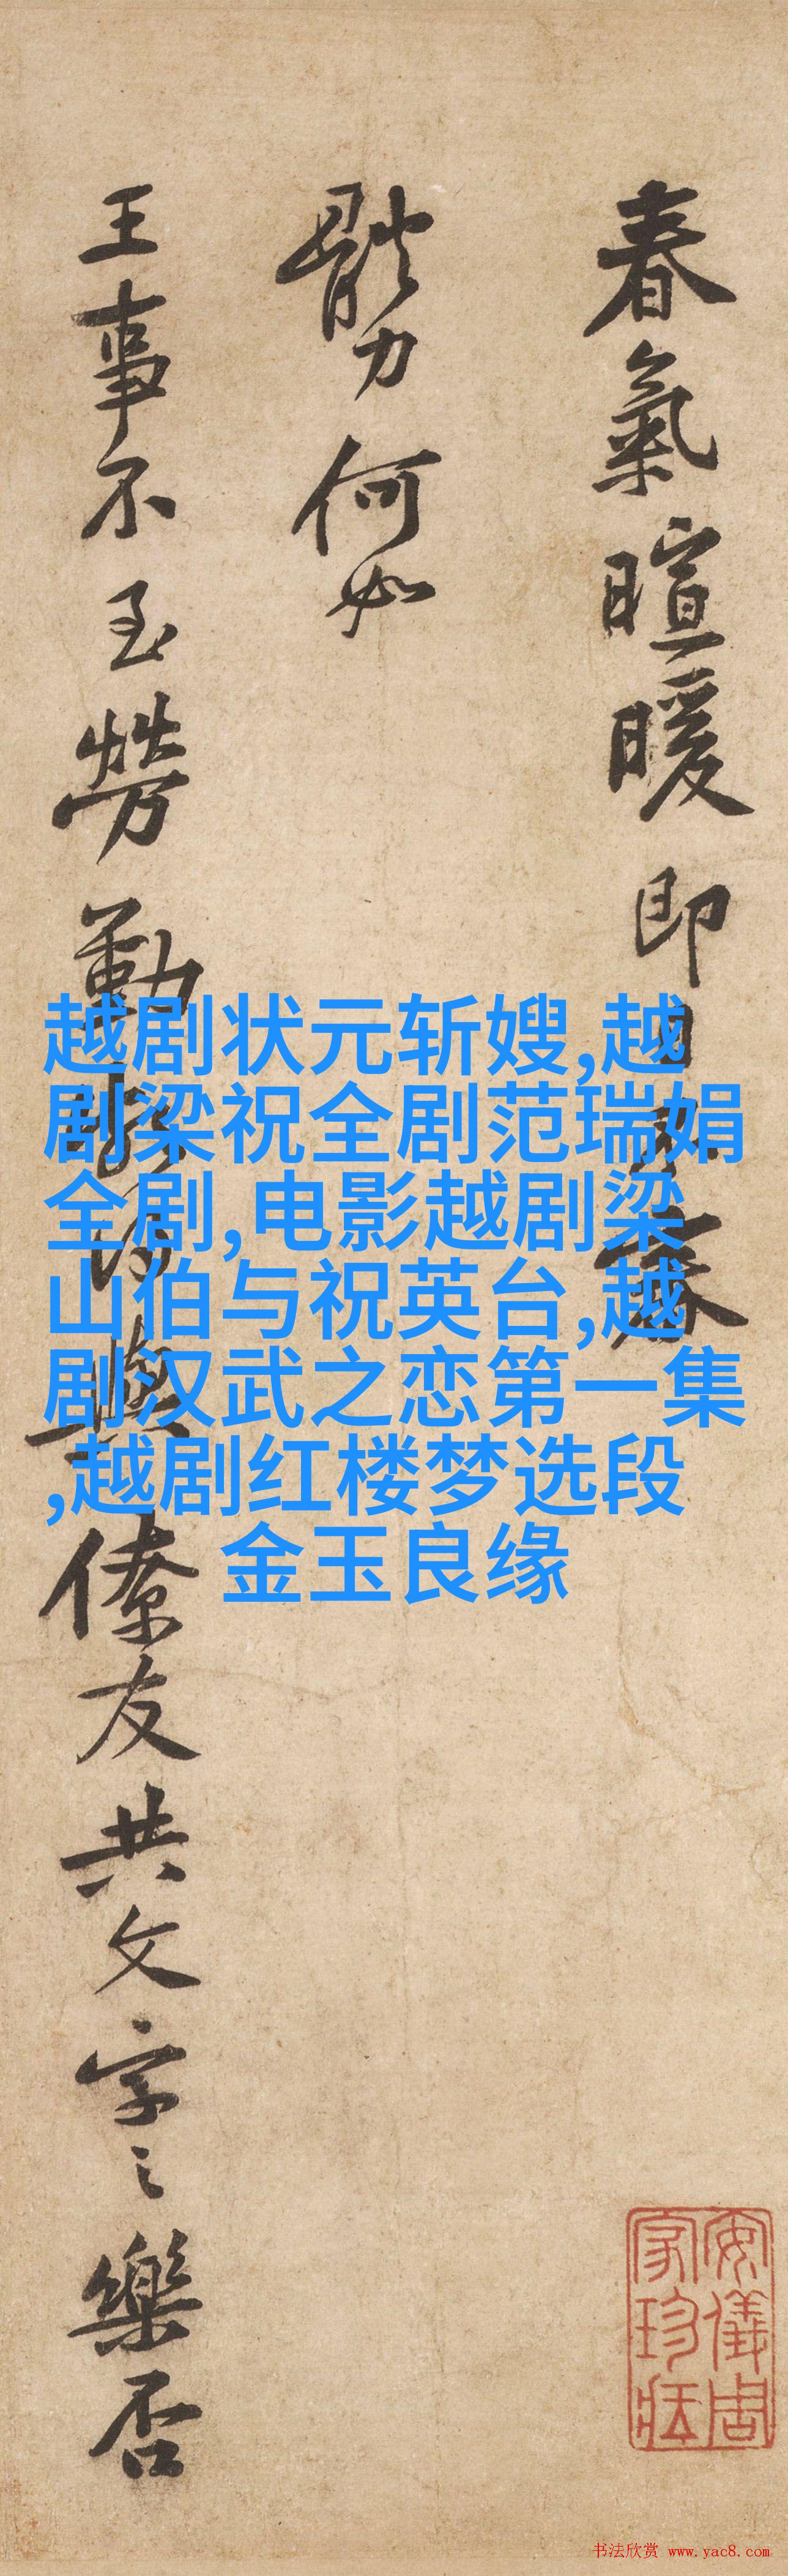 春氣暄暖即日
體力何如
王事不至勞勤
僚友共文字之樂否
越剧状元斩嫂,越
剧梁祝全剧范瑞娟
全剧,电影越剧梁
山伯与祝英台,越
剧汉武之恋第一集
,越剧红楼梦选段
金玉良缘
安儀周
家珍藏
书法欣赏 www.yac8.com